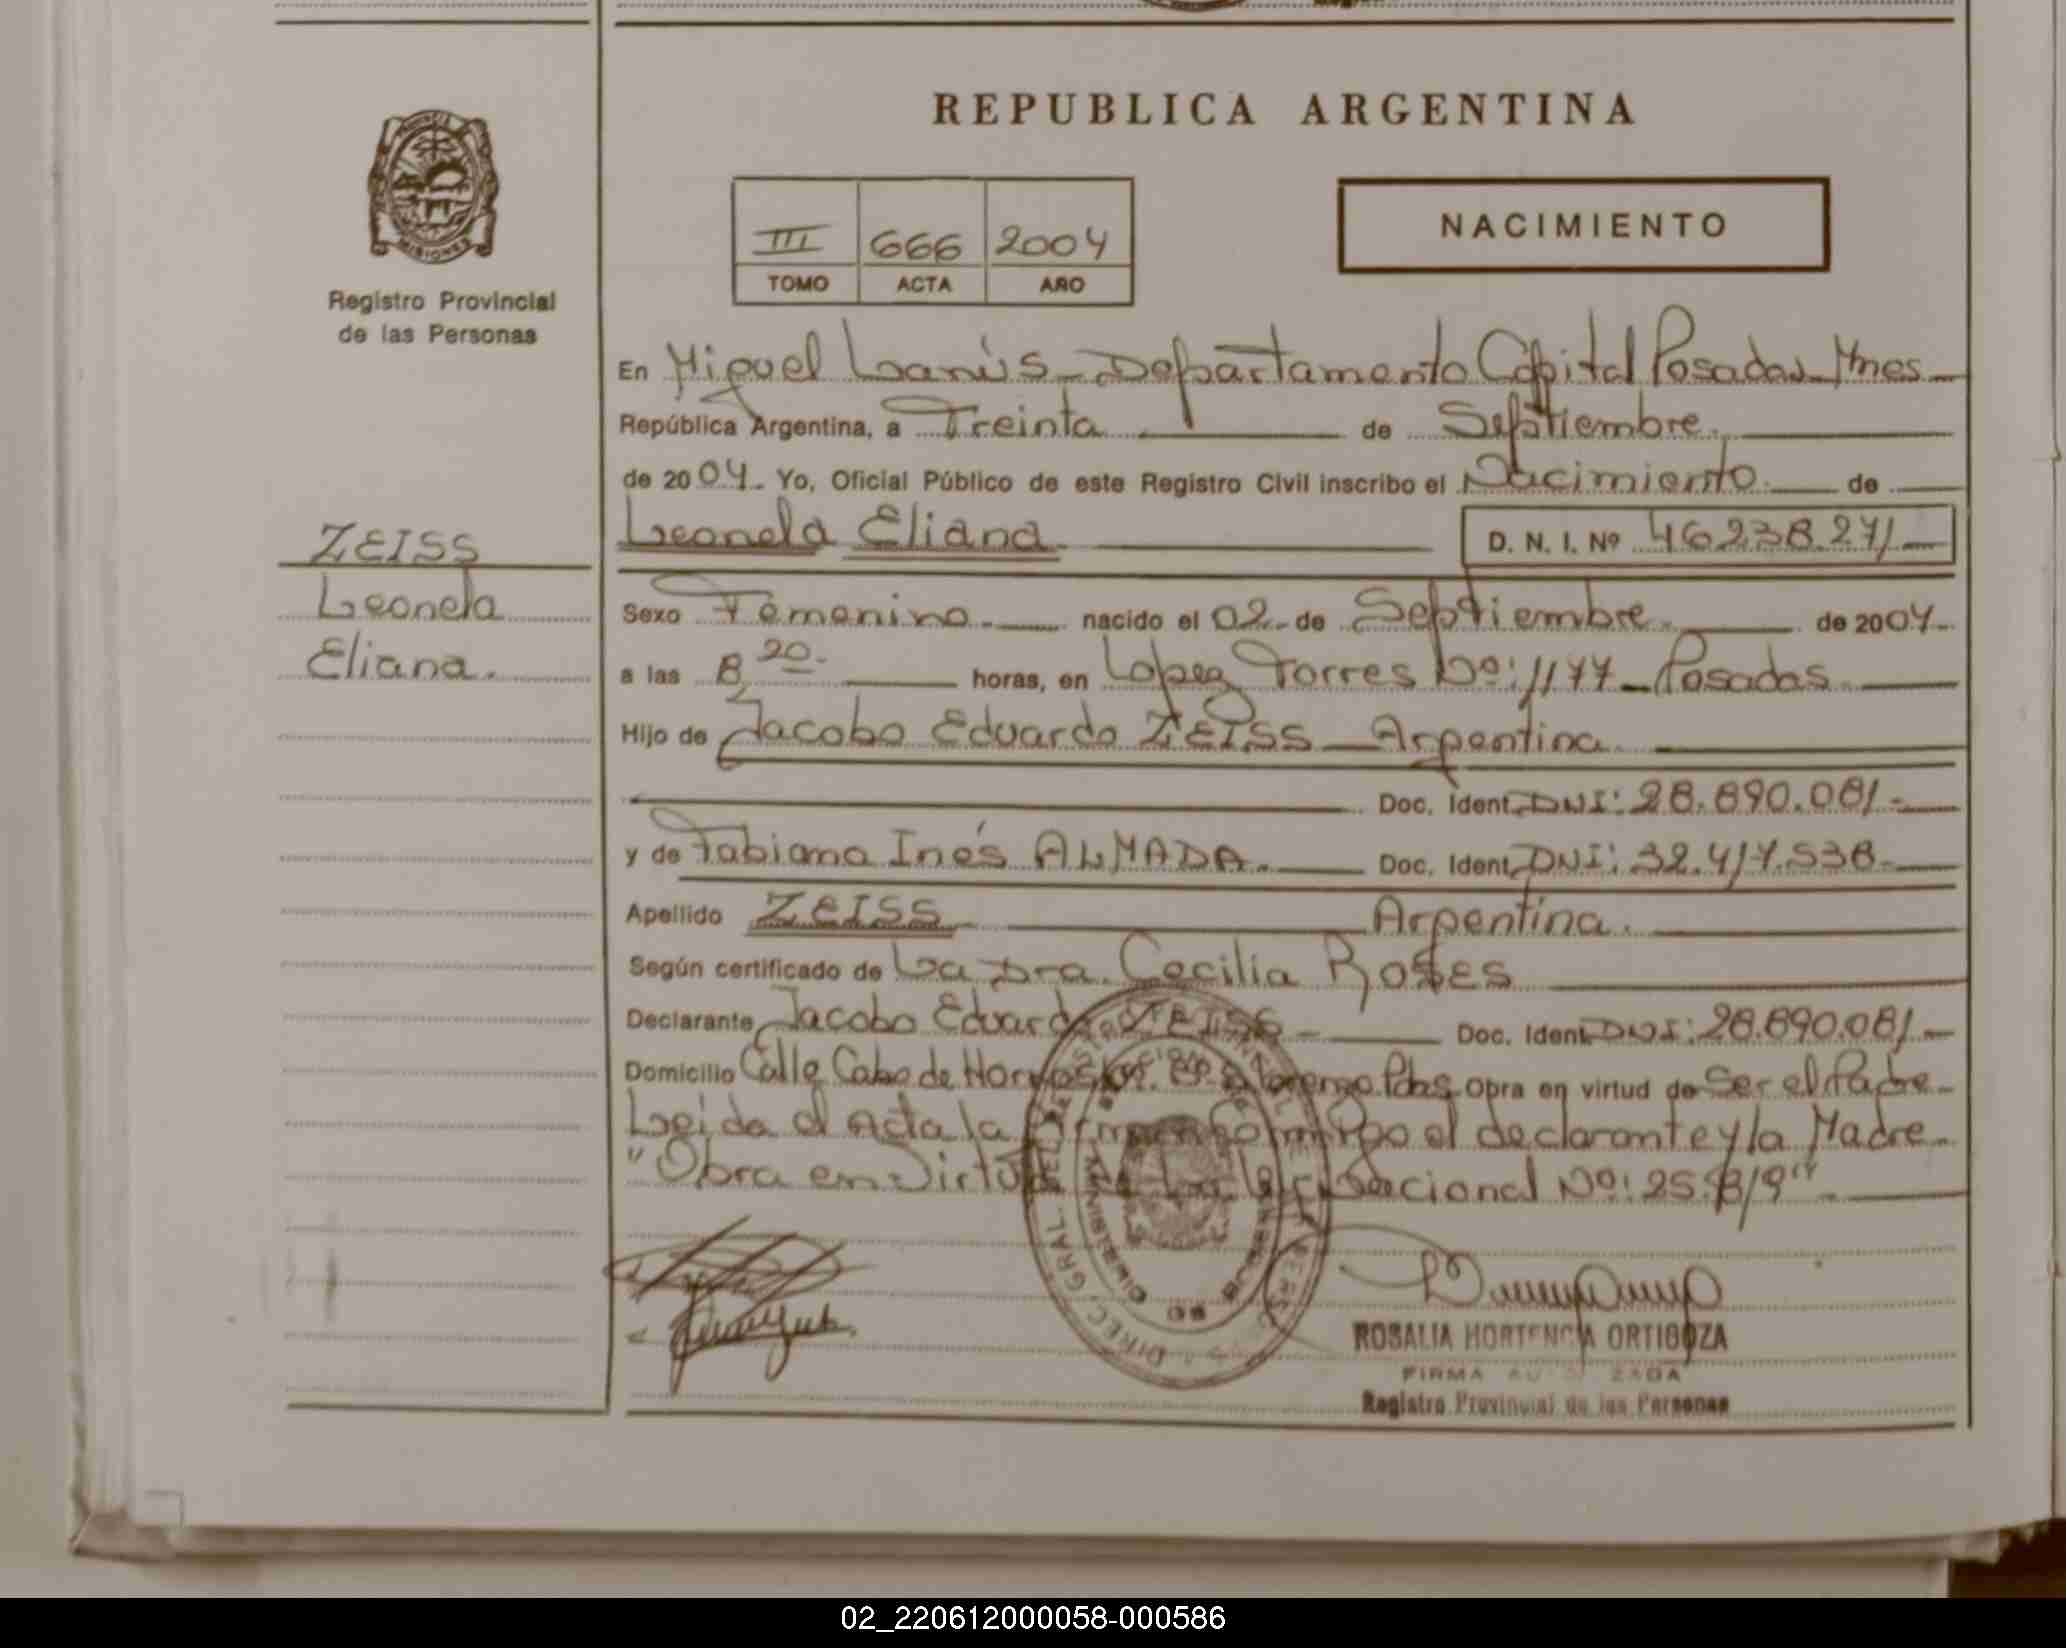 REPUBLICA ARGENTINA
MISIONES
Registro Provincial
de las Personas
III 666 2004
TOMO ACTA AÑO
NACIMIENTO
En Miguel Lanús - Departamento Capital Posadas Mnes
República Argentina, a Treinta de Septiembre
de 2004. Yo, Oficial Público de este Registro Civil inscribo el Nacimiento de
ZEISS
Leonela
Eliana.
Leonela Eliana D. N. I. Nº 46.238.271
Sexo Femenino. nacido el 02 de Septiembre. de 2004
a las 8,20 horas, en Lopez Torres Nº: 1177 - Posadas
Hijo de Jacobo Eduardo ZEISS - Argentina
Doc. Ident. DNI: 28.890.081-
y de Fabiana Inés ALMADA. Doc. Ident. DNI: 32.417.538-
Apellido ZEISS Argentina.
Según certificado de La Dra. Cecilia
Declarante Jacobo Eduardo ZEISS - Doc. Ident. DNI: 28.890.081-
Domicilio Calle Cabo de Hornos Pdas Obra en virtud de Ser el Padre
Leida el Acta la el declarante y la Madre
"Obra en Virtud de La Ley Nacional Nº: 25.819"
ROSALIA HORTENCIA ORTIGOZA
FIRMA AUTORIZADA
Registro Provincial de las Personas
02_220612000058-000586